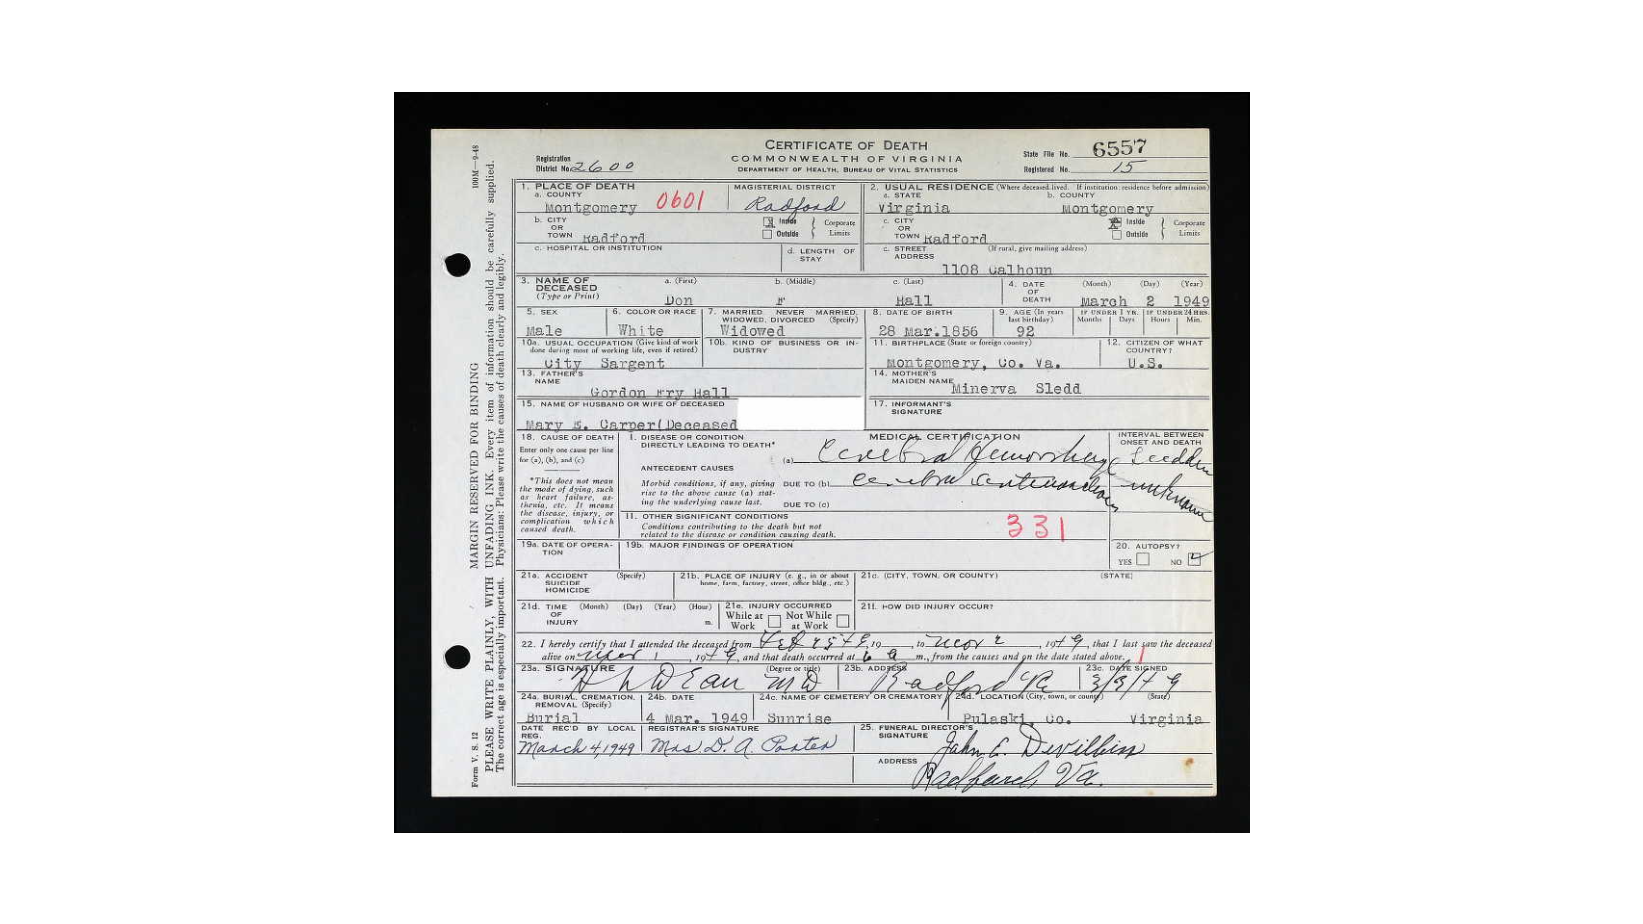 CERTIFICATE OF DEATH
COMMONWEALTH OF VIRGINIA
DEPARTMENT OF HEALTH, BUREAU OF VITAL STATISTICS
Registration District No. 2600
State File No. 6557
Registered No. 15
1. PLACE OF DEATH
a. COUNTY
Montgomery 0601
MAGISTERIAL DISTRICT
Radford
b. CITY OR TOWN Radford
Inside Outside Corporate Limits
c. HOSPITAL OR INSTITUTION
d. LENGTH OF STAY
2. USUAL RESIDENCE (Where deceased lived. If institution: residence before admission)
a. STATE b. COUNTY
Virginia Montgomery
c. CITY OR TOWN Radford
Inside Outside Corporate Limits
c. STREET ADDRESS (If rural, give mailing address)
1108 Calhoun
3. NAME OF DECEASED (Type or Print)
a. (First) b. (Middle) c. (Last)
Don F Hall
4. DATE OF DEATH (Month) (Day) (Year)
March 2 1949
5. SEX
Male
6. COLOR OR RACE
White
7. MARRIED, NEVER MARRIED, WIDOWED, DIVORCED (Specify)
Widowed
8. DATE OF BIRTH
28 Mar.1856
9. AGE (In years last birthday)
92
IF UNDER 1 YR. Months Days
IF UNDER 24 HRS. Hours Min.
10a. USUAL OCCUPATION (Give kind of work done during most of working life, even if retired)
City Sargent
10b. KIND OF BUSINESS OR INDUSTRY
11. BIRTHPLACE (State or foreign country)
Montgomery, Co. Va.
12. CITIZEN OF WHAT COUNTRY?
U.S.
13. FATHER'S NAME
Gordon Fry Hall
14. MOTHER'S MAIDEN NAME
Minerva Sledd
15. NAME OF HUSBAND OR WIFE OF DECEASED
Mary E. Carper(Deceased
17. INFORMANT'S SIGNATURE
18. CAUSE OF DEATH
Enter only one cause per line for (a), (b), and (c)
*This does not mean the mode of dying, such as heart failure, asthenia, etc. It means the disease, injury, or complication which caused death.
MEDICAL CERTIFICATION
INTERVAL BETWEEN ONSET AND DEATH
I. DISEASE OR CONDITION DIRECTLY LEADING TO DEATH*
(a) Cerebral Hemorrhage Sudden
ANTECEDENT CAUSES
Morbid conditions, if any, giving rise to the above cause (a) stating the underlying cause last.
DUE TO (b) cerebral unknown
DUE TO (c)
II. OTHER SIGNIFICANT CONDITIONS
Conditions contributing to the death but not related to the disease or condition causing death.
331
19a. DATE OF OPERATION
19b. MAJOR FINDINGS OF OPERATION
20. AUTOPSY?
YES NO
21a. ACCIDENT SUICIDE HOMICIDE (Specify)
21b. PLACE OF INJURY (e. g., in or about home, farm, factory, street, office bldg., etc.)
21c. (CITY, TOWN, OR COUNTY) (STATE)
21d. TIME OF INJURY (Month) (Day) (Year) (Hour) m.
21e. INJURY OCCURRED
While at Work Not While at Work
21f. HOW DID INJURY OCCUR?
22. I hereby certify that I attended the deceased from Feb 19, to Mar 2, 1949, that I last saw the deceased
alive on Mar 1, 1949, and that death occurred at 6 a m., from the causes and on the date stated above.
23a. SIGNATURE (Degree or title)
MD
23b. ADDRESS
Radford Va
23c. DATE SIGNED
3/3/49
24a. BURIAL, CREMATION, REMOVAL (Specify)
Burial
24b. DATE
4 Mar. 1949
24c. NAME OF CEMETERY OR CREMATORY
Sunrise
24d. LOCATION (City, town, or county) (State)
Pulaski, Co. Virginia
DATE REC'D BY LOCAL REG.
March 4, 1949
REGISTRAR'S SIGNATURE
Mrs D. A. Porter
25. FUNERAL DIRECTOR'S SIGNATURE
John C. Devilbiss
ADDRESS
Radford, Va.
Form V. S. 12 MARGIN RESERVED FOR BINDING 100M—9-48
PLEASE WRITE PLAINLY, WITH UNFADING INK. Every item of information should be carefully supplied.
The correct age is especially important. Physicians: Please write the causes of death clearly and legibly.